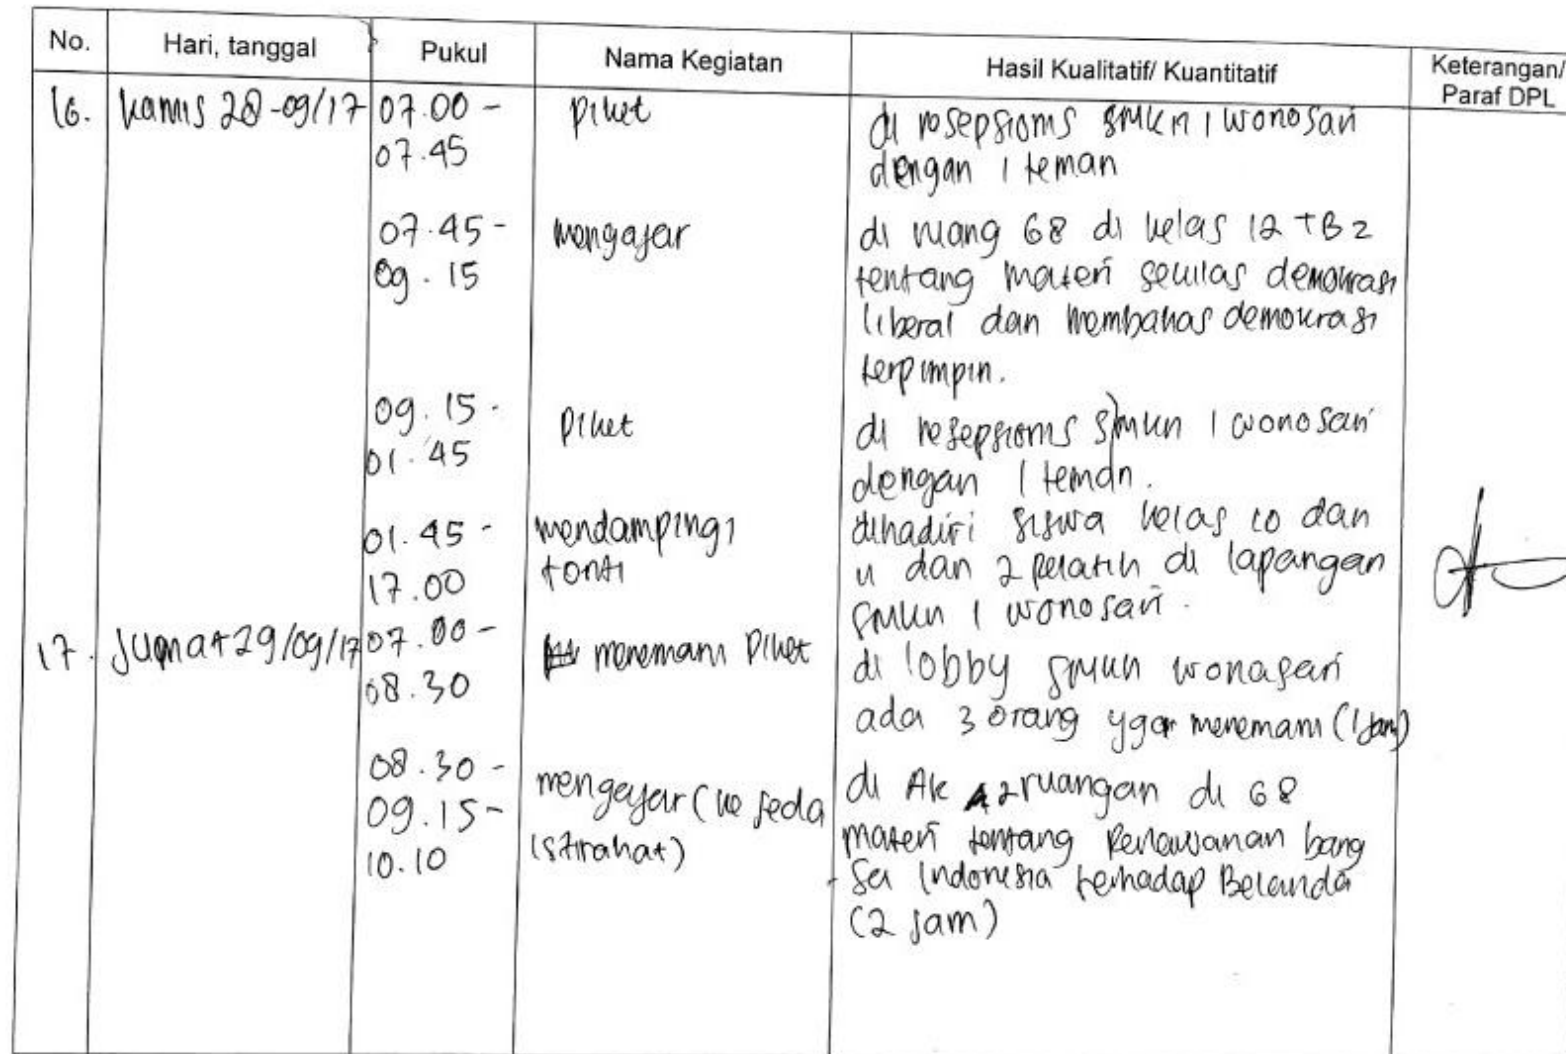 No. Hari, tanggal Pukul Nama Kegiatan Hasil Kualitatif/ Kuantitatif Keterangan/
Paraf DPL
16. Kamis 28-09/17 07.00 - Piket di resepsionis SMKN 1 Wonosari
07.45 dengan 1 teman
07.45 - mengajar di ruang 68 di kelas 12 TB 2
09.15 tentang materi sekilas demokrasi
liberal dan membahas demokrasi
terpimpin.
09.15 - Piket di resepsionis SMKN 1 Wonosari
01.45 dengan 1 teman.
01.45 - mendampingi dihadiri siswa kelas 10 dan
17.00 tonti 11 dan 2 pelatih di lapangan
SMKN 1 Wonosari.
17. Jumat 29/09/17 07.00 - menemani Piket di lobby SMKN Wonosari
08.30 ada 3 orang menemani (1 jam)
08.30 - mengajar (ke jeda di AK 2 ruangan di 68
09.15 - istirahat) materi tentang Perlawanan bang
10.10 - sa Indonesia terhadap Belanda
(2 jam)